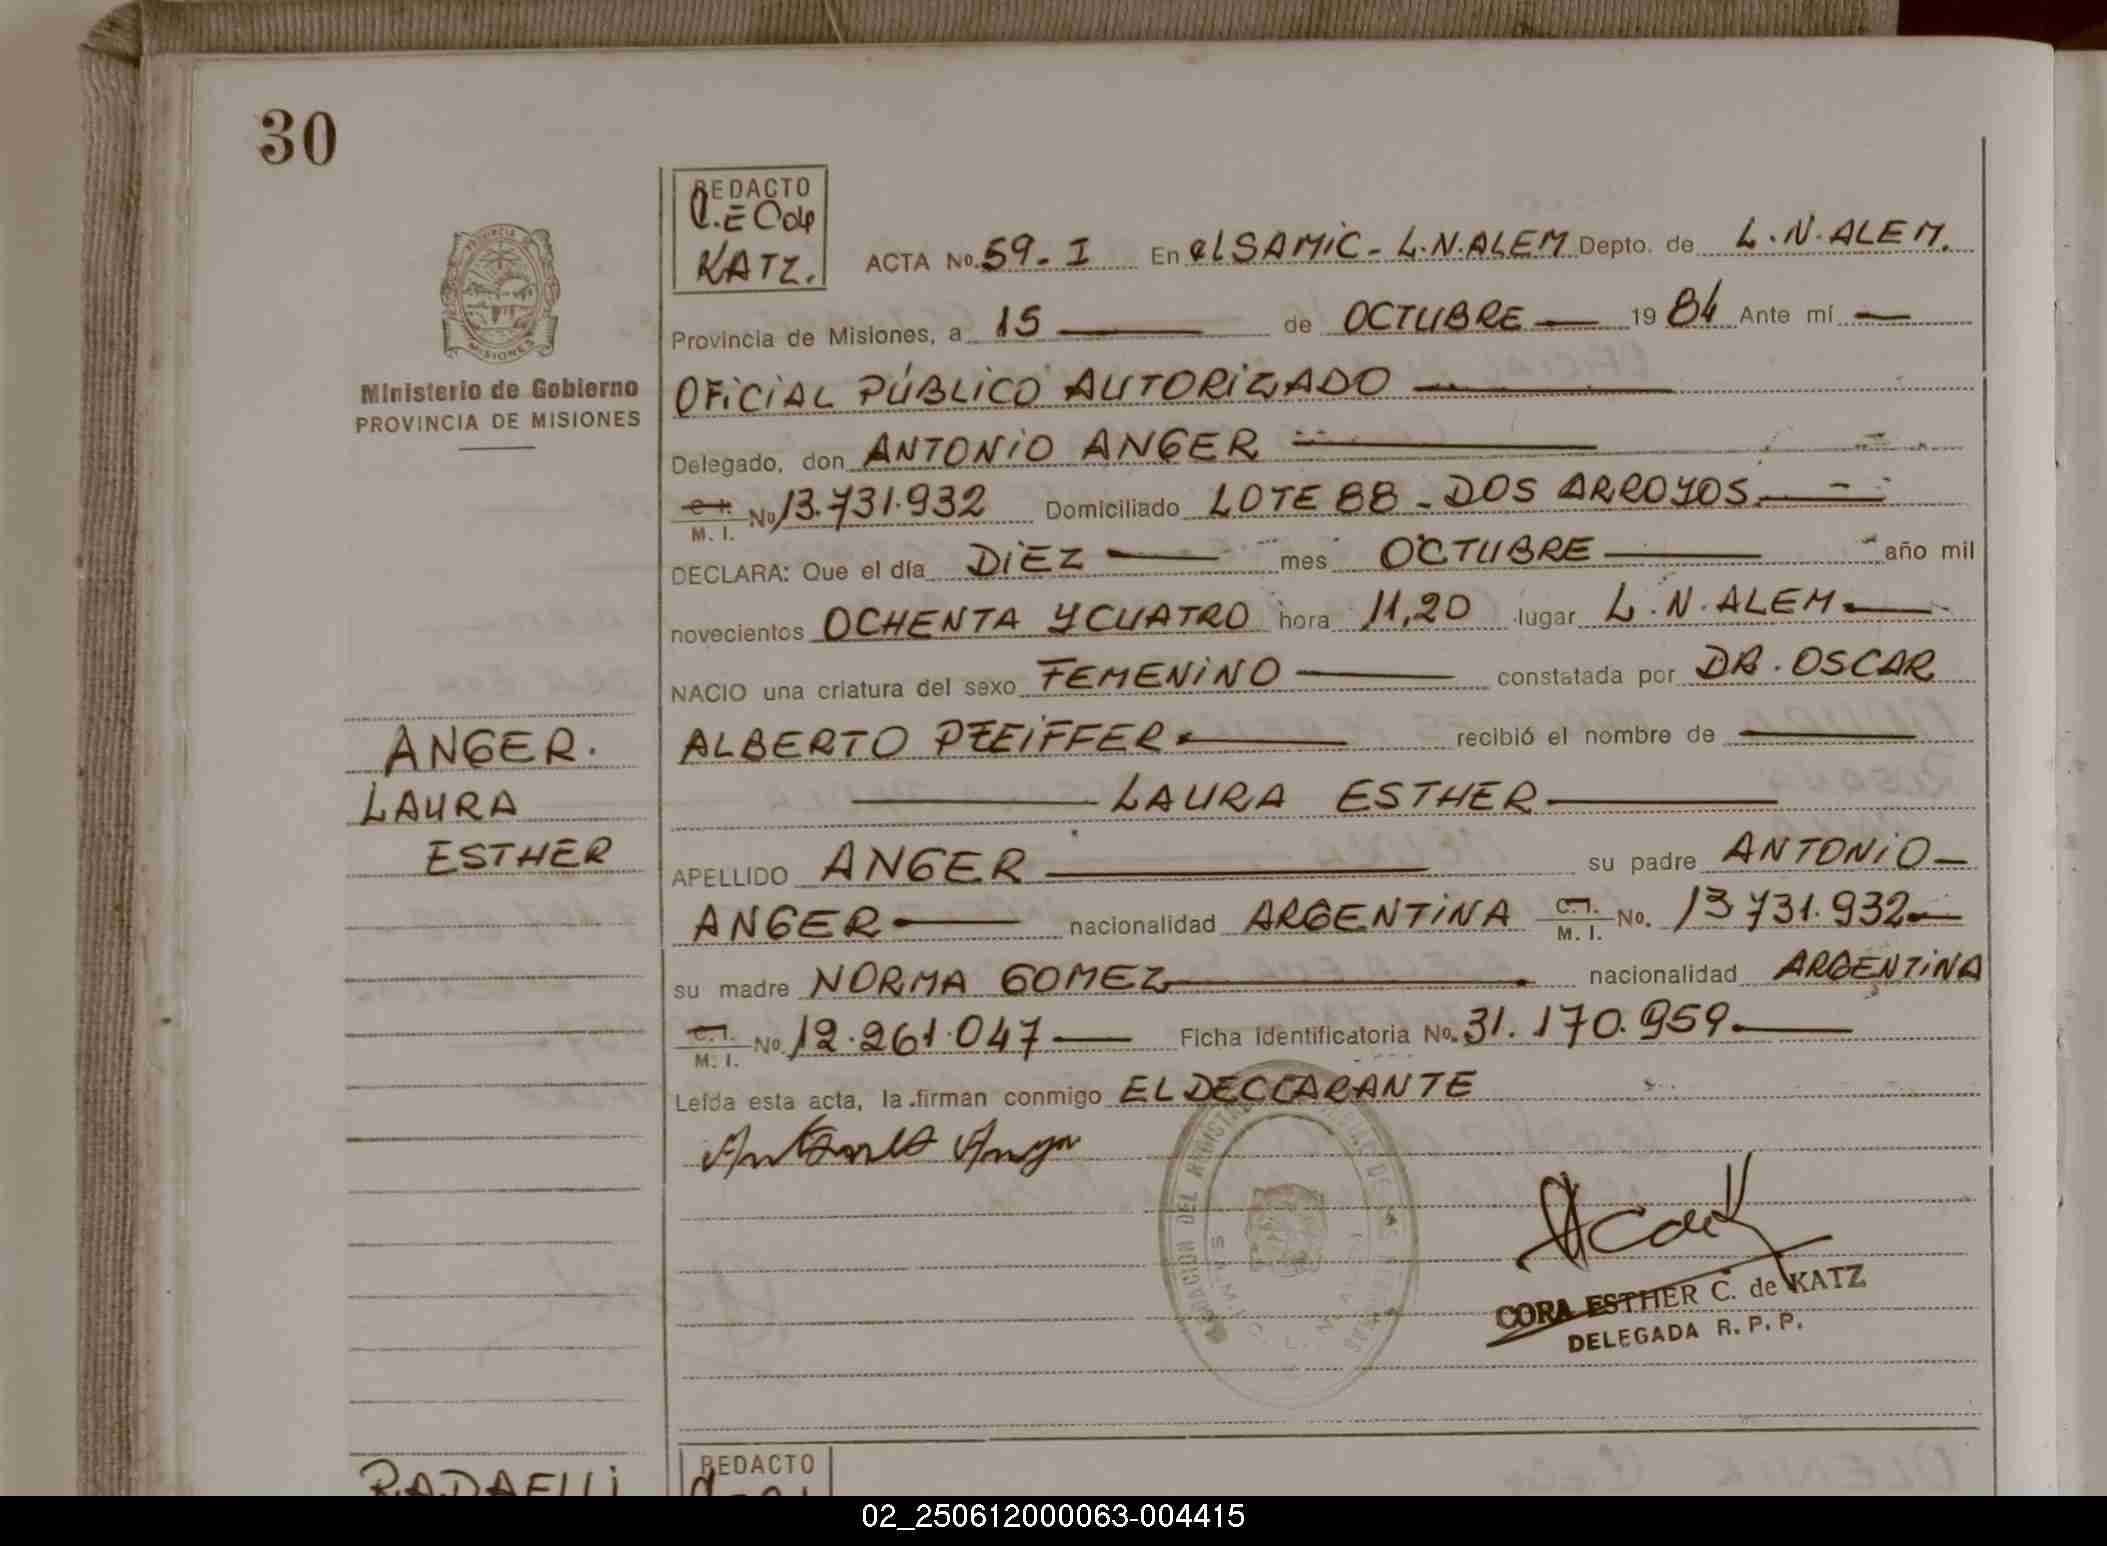 30
REDACTO
C.E C de
KATZ.
ACTA No. 59-I En el SAMIC - L.N.ALEM Depto. de L.N.ALEM.
PROVINCIA DE
MISIONES
Provincia de Misiones, a 15 de OCTUBRE 19 84 Ante mí
Ministerio de Gobierno
PROVINCIA DE MISIONES
OFICIAL PÚBLICO AUTORIZADO
Delegado, don ANTONIO ANGER
C.I. M. I. No 13.731.932 Domiciliado LOTE 88 - DOS ARROYOS.
DECLARA: Que el día DIEZ mes OCTUBRE año mil
novecientos OCHENTA Y CUATRO hora 11,20 lugar L.N.ALEM
NACIO una criatura del sexo FEMENINO constatada por DR. OSCAR
ALBERTO PFEIFFER recibió el nombre de
LAURA ESTHER
ANGER.
LAURA
ESTHER
APELLIDO ANGER su padre ANTONIO
ANGER nacionalidad ARGENTINA C.I. M. I. No. 13.731.932
su madre NORMA GOMEZ nacionalidad ARGENTINA
C.I. M. I. No 12.261.047 Ficha Identificatoria No. 31.170.959
Leída esta acta, la firman conmigo EL DECLARANTE
Antonio Anger
CORA ESTHER C. de KATZ
DELEGADA R. P. P.
RADAELLI
REDACTO
02_250612000063-004415